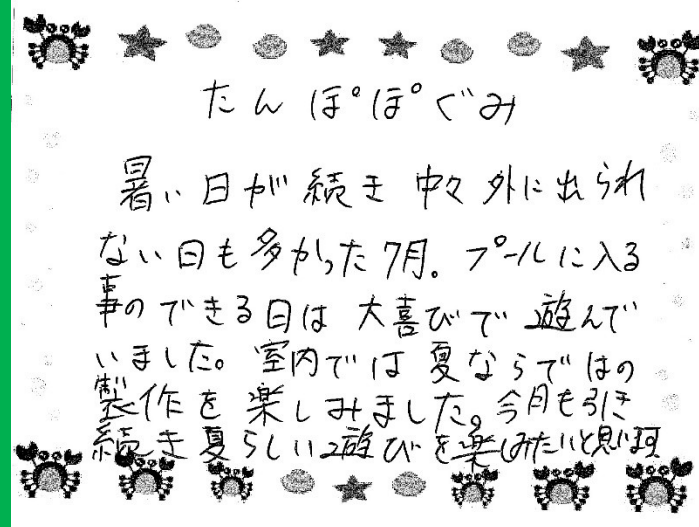 たんぽぽぐみ
暑い日が続き 中々 外に出られ
ない日も多かった7月。プールに入る
事のできる日は 大喜びで 遊んで
いました。室内では 夏ならではの
製作を 楽しみました。今月も引き
続き夏らしい遊びを楽しみたいと思います